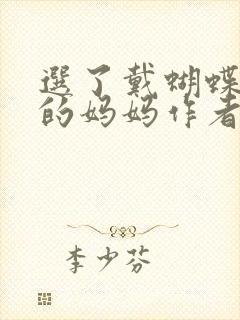 選了戴蝴蝶
的妈妈作者
李少芬